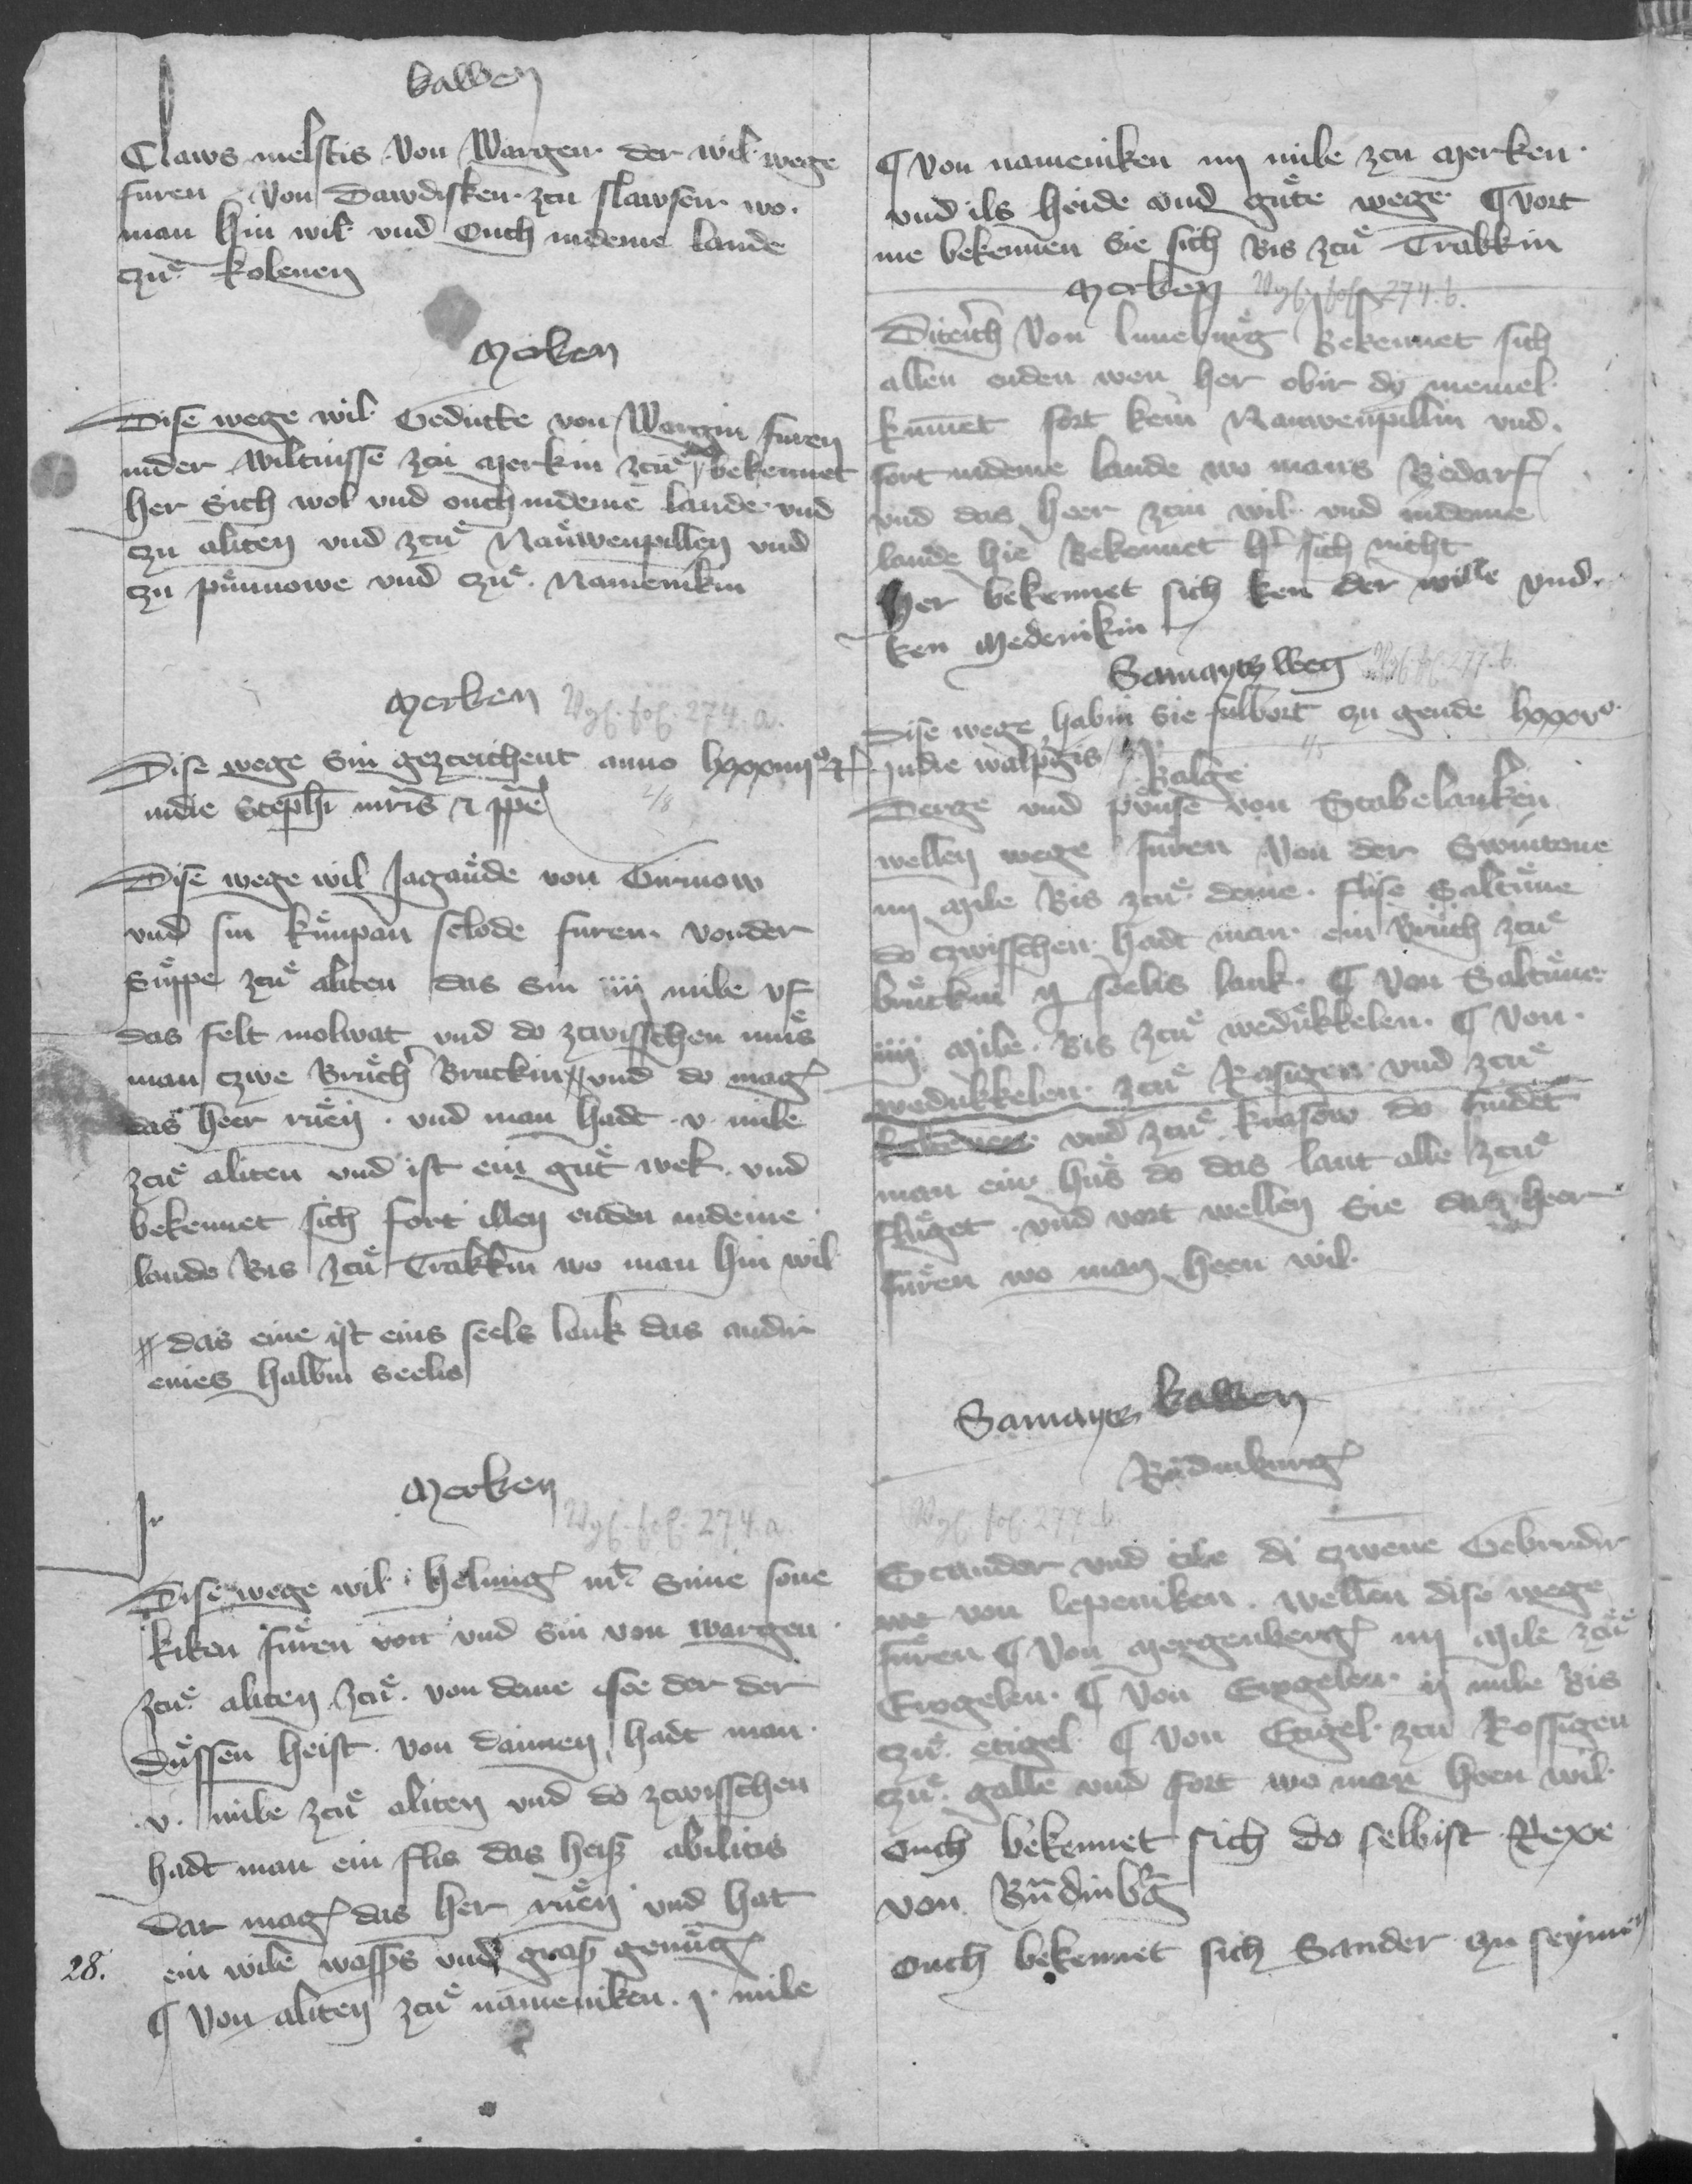 kawen
Claws melstis von Wargen der wil wege
furen von Dawdisken zcu slawsen wo
man hin wil vnd Ouch indeme lande
czuͤ kolenen
Merken
Dise wege wil Geducke von Wargin furen
inder wiltnisse zcu Merkin zcuͤ bekennet
her Sich wol vnd ouch indeme lande vnd
czu aliten vnd zcuͤ Nauͤwenpillen vnd
czu puͤnnowe vnd czuͤ Namenikin
Merken Vgl. fol. 274. a.
Dise wege Sin gezceichent anno lxxxiiij°
indie Stephī mr̄is
Dise wege wil Jagauͤde von Girmow
vnd sin kuͤmpan sclode furen vonder
Suͤppe zcuͤ aliten das Sin iiij mile vf
das felt molwat vnd do zcwisschen muͤs
man czwe Bruͤch Bruckin vnd do mag
das heer ruͤen vnd man hadt v mile
zcuͤ aliten vnd ist ein guͤt wek vnd
bekennet sich fort illen enden indeme
lande Bis zcuͤ Trakkin wo man hin wil
das eine ist eins seels lank das andir
eines halbin Seelis
Merken
Vgl. fol. 274. a.
Dise wege wil heluuig mͭ Sime sone
kiken fuͤren von vnd Sin von wargen
zcuͤ aliten zcuͤ von deme see der der
duͤssen heist von dannen hadt man
v mile zcuͤ aliten vnd do zcwisschen
hadt man ein flis das heist abilitis
Dar mag das her ruͤen vnd hat
28. ein wile wassers vnd gras genuͤg
¶ Von aliten zcuͤ nameniken j mile
¶ Von nameniken iij mile zcu Merken
vnd ils heide vnd guͤte wege ¶ vort
me bekennen Sie sich Bis zcuͤ Trakkin
Merken Vgl. fol. 274. b.
Diterich von luneburg Bekennet sich
allen enden wen her obir dy memel
kumet fort kein Nauwenpillin vnd
fort indeme lande wo mans Bedarf
vnd das heer zcin wil vnd indeme
lande hie Bekennet her sich nicht
Her bekennet sich ken der wille vnd
ken Medenikin
Samayts Weg Vgl. fol. 277. b.
Dise wege habin Sie fulbort zu gende lxxxv°
Indie walpgis
Balge
Derge vnd poͤnse von Scabelauken
wellen wege fuͤren von der Swintoue
iij Mile Bis zcuͤ deme flise Saltuͤne
do czwisschen hadt man ein Bruͤch zcuͤ
bruͤckin ij seelis lank ¶ Von Saltuͤne
iiij Mile Bis zcuͤ weduͤkkelen ¶ Von
weduͤkkelen zcuͤ Rasigen vnd zcuͤ
vnd zcuͤ krasow do findet
man ein huͤs do das lant alle zcuͤ
fluͤget vnd vort wellen Sie das heer
fuͤren wo man heen wil
Samayts kawen
Vgl. fol. 277. b.
Scander vnd tile di czwene Gebrudir
we von lepeniken wellen dise wege
fuͤren ¶ Von Mergenberg iij Mile zcuͤ
Eregelen ¶ Von Eregelen ij mile Bis
czuͤ etigel ¶ Von Etigel zcu Rossigen
czuͤ galle vnd fort wo man heen wil
ouch bekennet sich do selbist Rexe
von
ouch bekennet sich Sander zu seymen